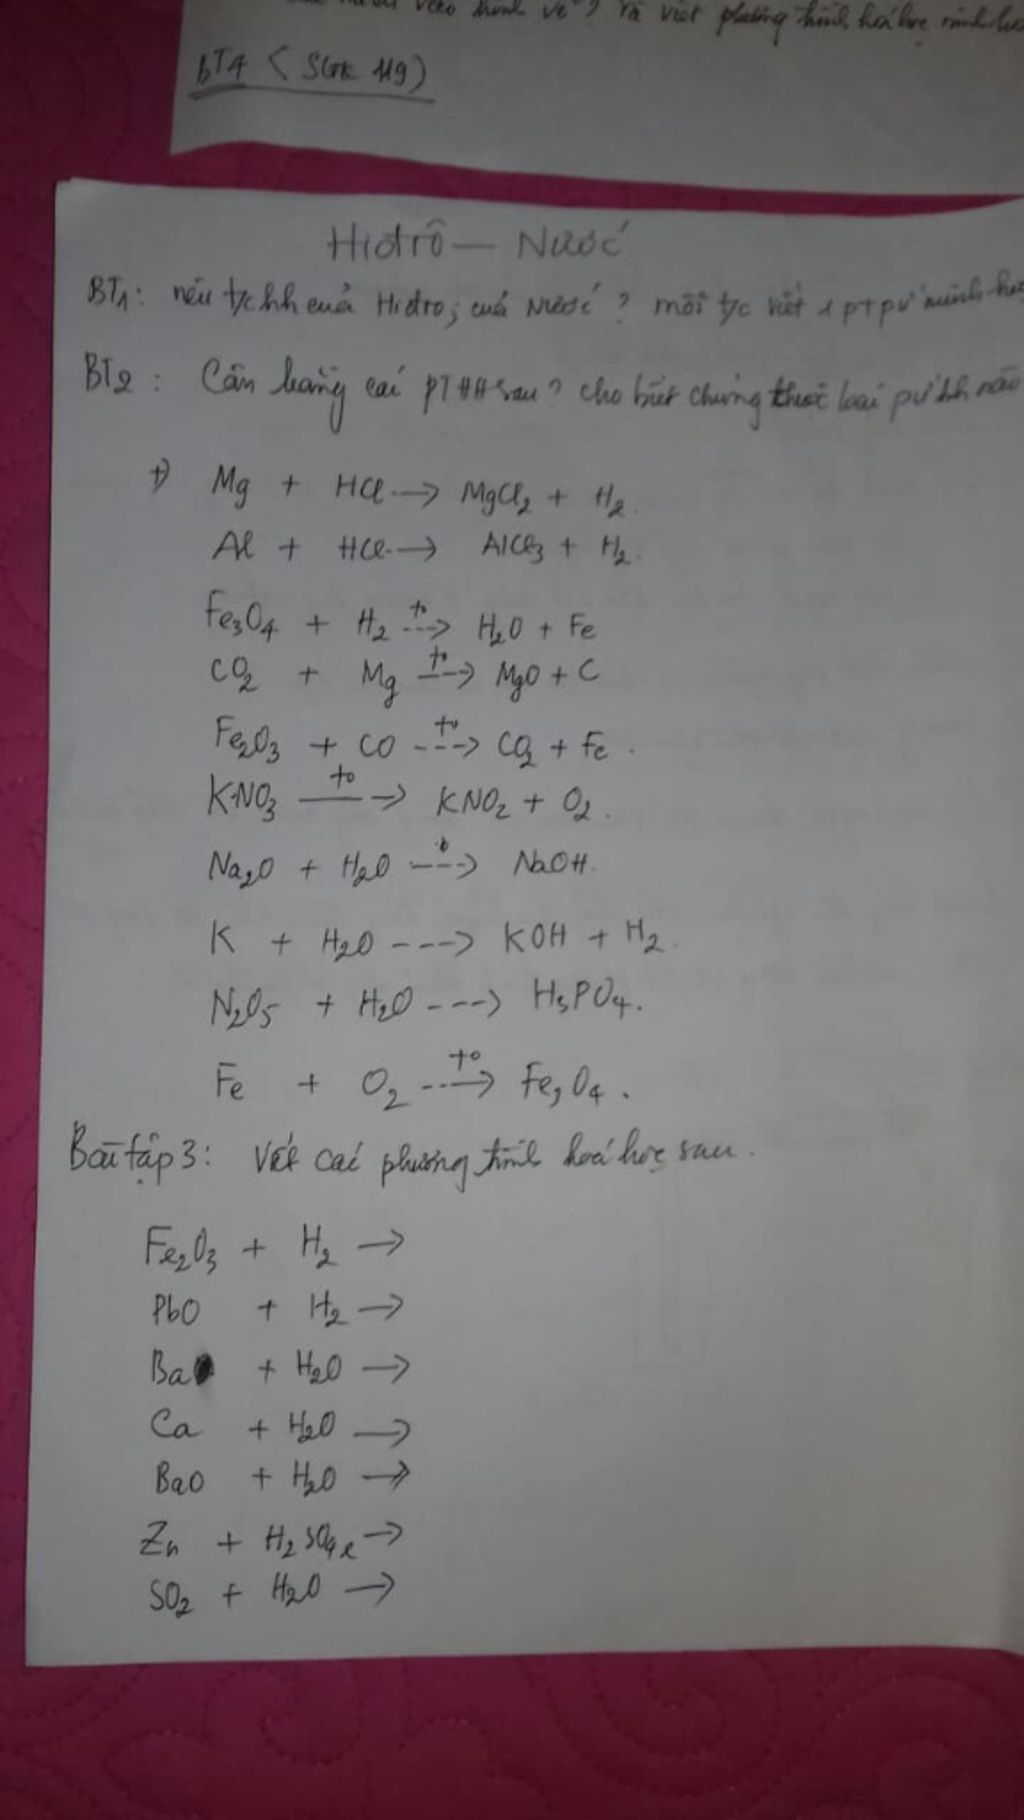 vào hình vẽ? và viết phương trình hoá học minh
BT4 (SGK 119)
Hiđrô — Nước
BT1: nêu t/c hh của Hidro; của Nước? mỗi t/c viết 1 ptpư minh
BT2: Cân bằng các PTHH sau? cho biết chúng thuộc loại pư hh nào
+) Mg + HCl → MgCl2 + H2.
Al + HCl → AlCl3 + H2.
Fe3O4 + H2 t° → H2O + Fe
CO2 + Mg t° → MgO + C
Fe2O3 + CO t° → CO2 + Fe.
KNO3 t° → KNO2 + O2.
Na2O + H2O → NaOH.
K + H2O → KOH + H2.
N2O5 + H2O → H3PO4.
Fe + O2 t° → Fe3O4.
Bài tập 3: Viết các phương trình hoá học sau.
Fe2O3 + H2 →
PbO + H2 →
Ba + H2O →
Ca + H2O →
BaO + H2O →
Zn + H2SO4 l →
SO2 + H2O →